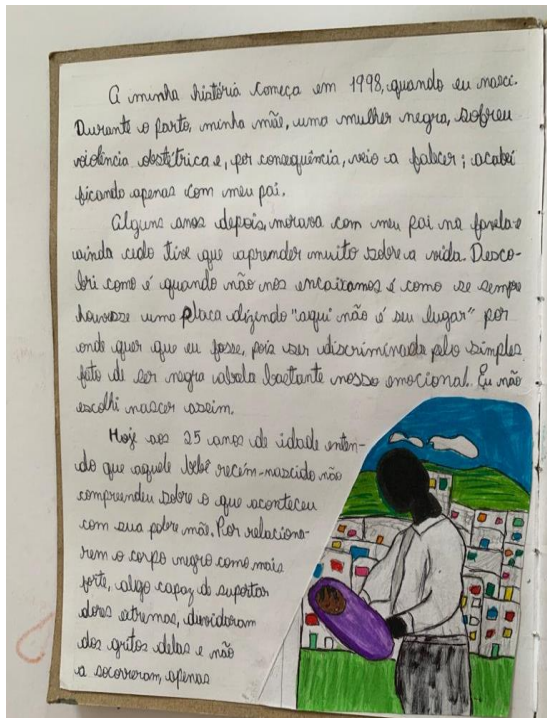 A minha história começa em 1998, quando eu nasci.
Durante o parto, minha mãe, uma mulher negra, sofreu
violência obstétrica e, por consequência, veio a falecer; acabei
ficando apenas com meu pai.
Alguns anos depois, morava com meu pai na favela e
ainda cedo tive que aprender muito sobre a vida. Desco-
bri como é quando não nos encaixamos é como se sempre
houvesse uma placa dizendo "aqui não é seu lugar" por
onde quer que eu fosse, pois ser discriminada pelo simples
fato de ser negra abala bastante nosso emocional. Eu não
escolhi nascer assim.
Hoje aos 25 anos de idade enten-
do que aquele bebê recém-nascido não
compreendeu sobre o que aconteceu
com sua pobre mãe. Por relaciona-
rem o corpo negro como mais
forte, algo capaz de suportar
dores extremas, duvidaram
dos gritos delas e não
a socorreram, apenas